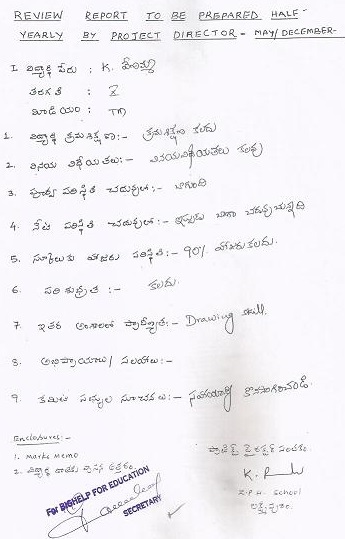 REVIEW REPORT TO BE PREPARED HALF-
YEARLY BY PROJECT DIRECTOR - MAY/DECEMBER-
I. విద్యార్థి పేరు : K.
తరగతి : X
మీడియం : TM
1. విద్యార్థి క్రమశిక్షణ :- క్రమశిక్షణ కలదు
2. వినయ విధేయతలు :- వినయవిధేయతలు కలవు
3. పూర్వ పరిస్థితి చదువులో :- బాగుంది
4. నేటి పరిస్థితి చదువులో :- ఇప్పుడు బాగా చదువుచున్నది
5. స్కూలుకు హాజరు పరిస్థితి :- 90% హాజరు కలదు.
6. పరిశుభ్రత :- కలదు.
7. ఇతర అంశాలలో ప్రావీణ్యత :- Drawing skill.
8. అభిప్రాయాలు / సలహాలు :-
9. కమిటి సభ్యుల సూచనలు :- సహాయాన్ని కొనసాగించండి.
Enclosures :-
1. Marks Memo
2. విద్యార్థి రాయు ఉత్తరం.
ప్రాజెక్ట్ డైరెక్టర్ సంతకం
K.
Z.P.H. School
For BIGHELP FOR EDUCATION
SECRETARY